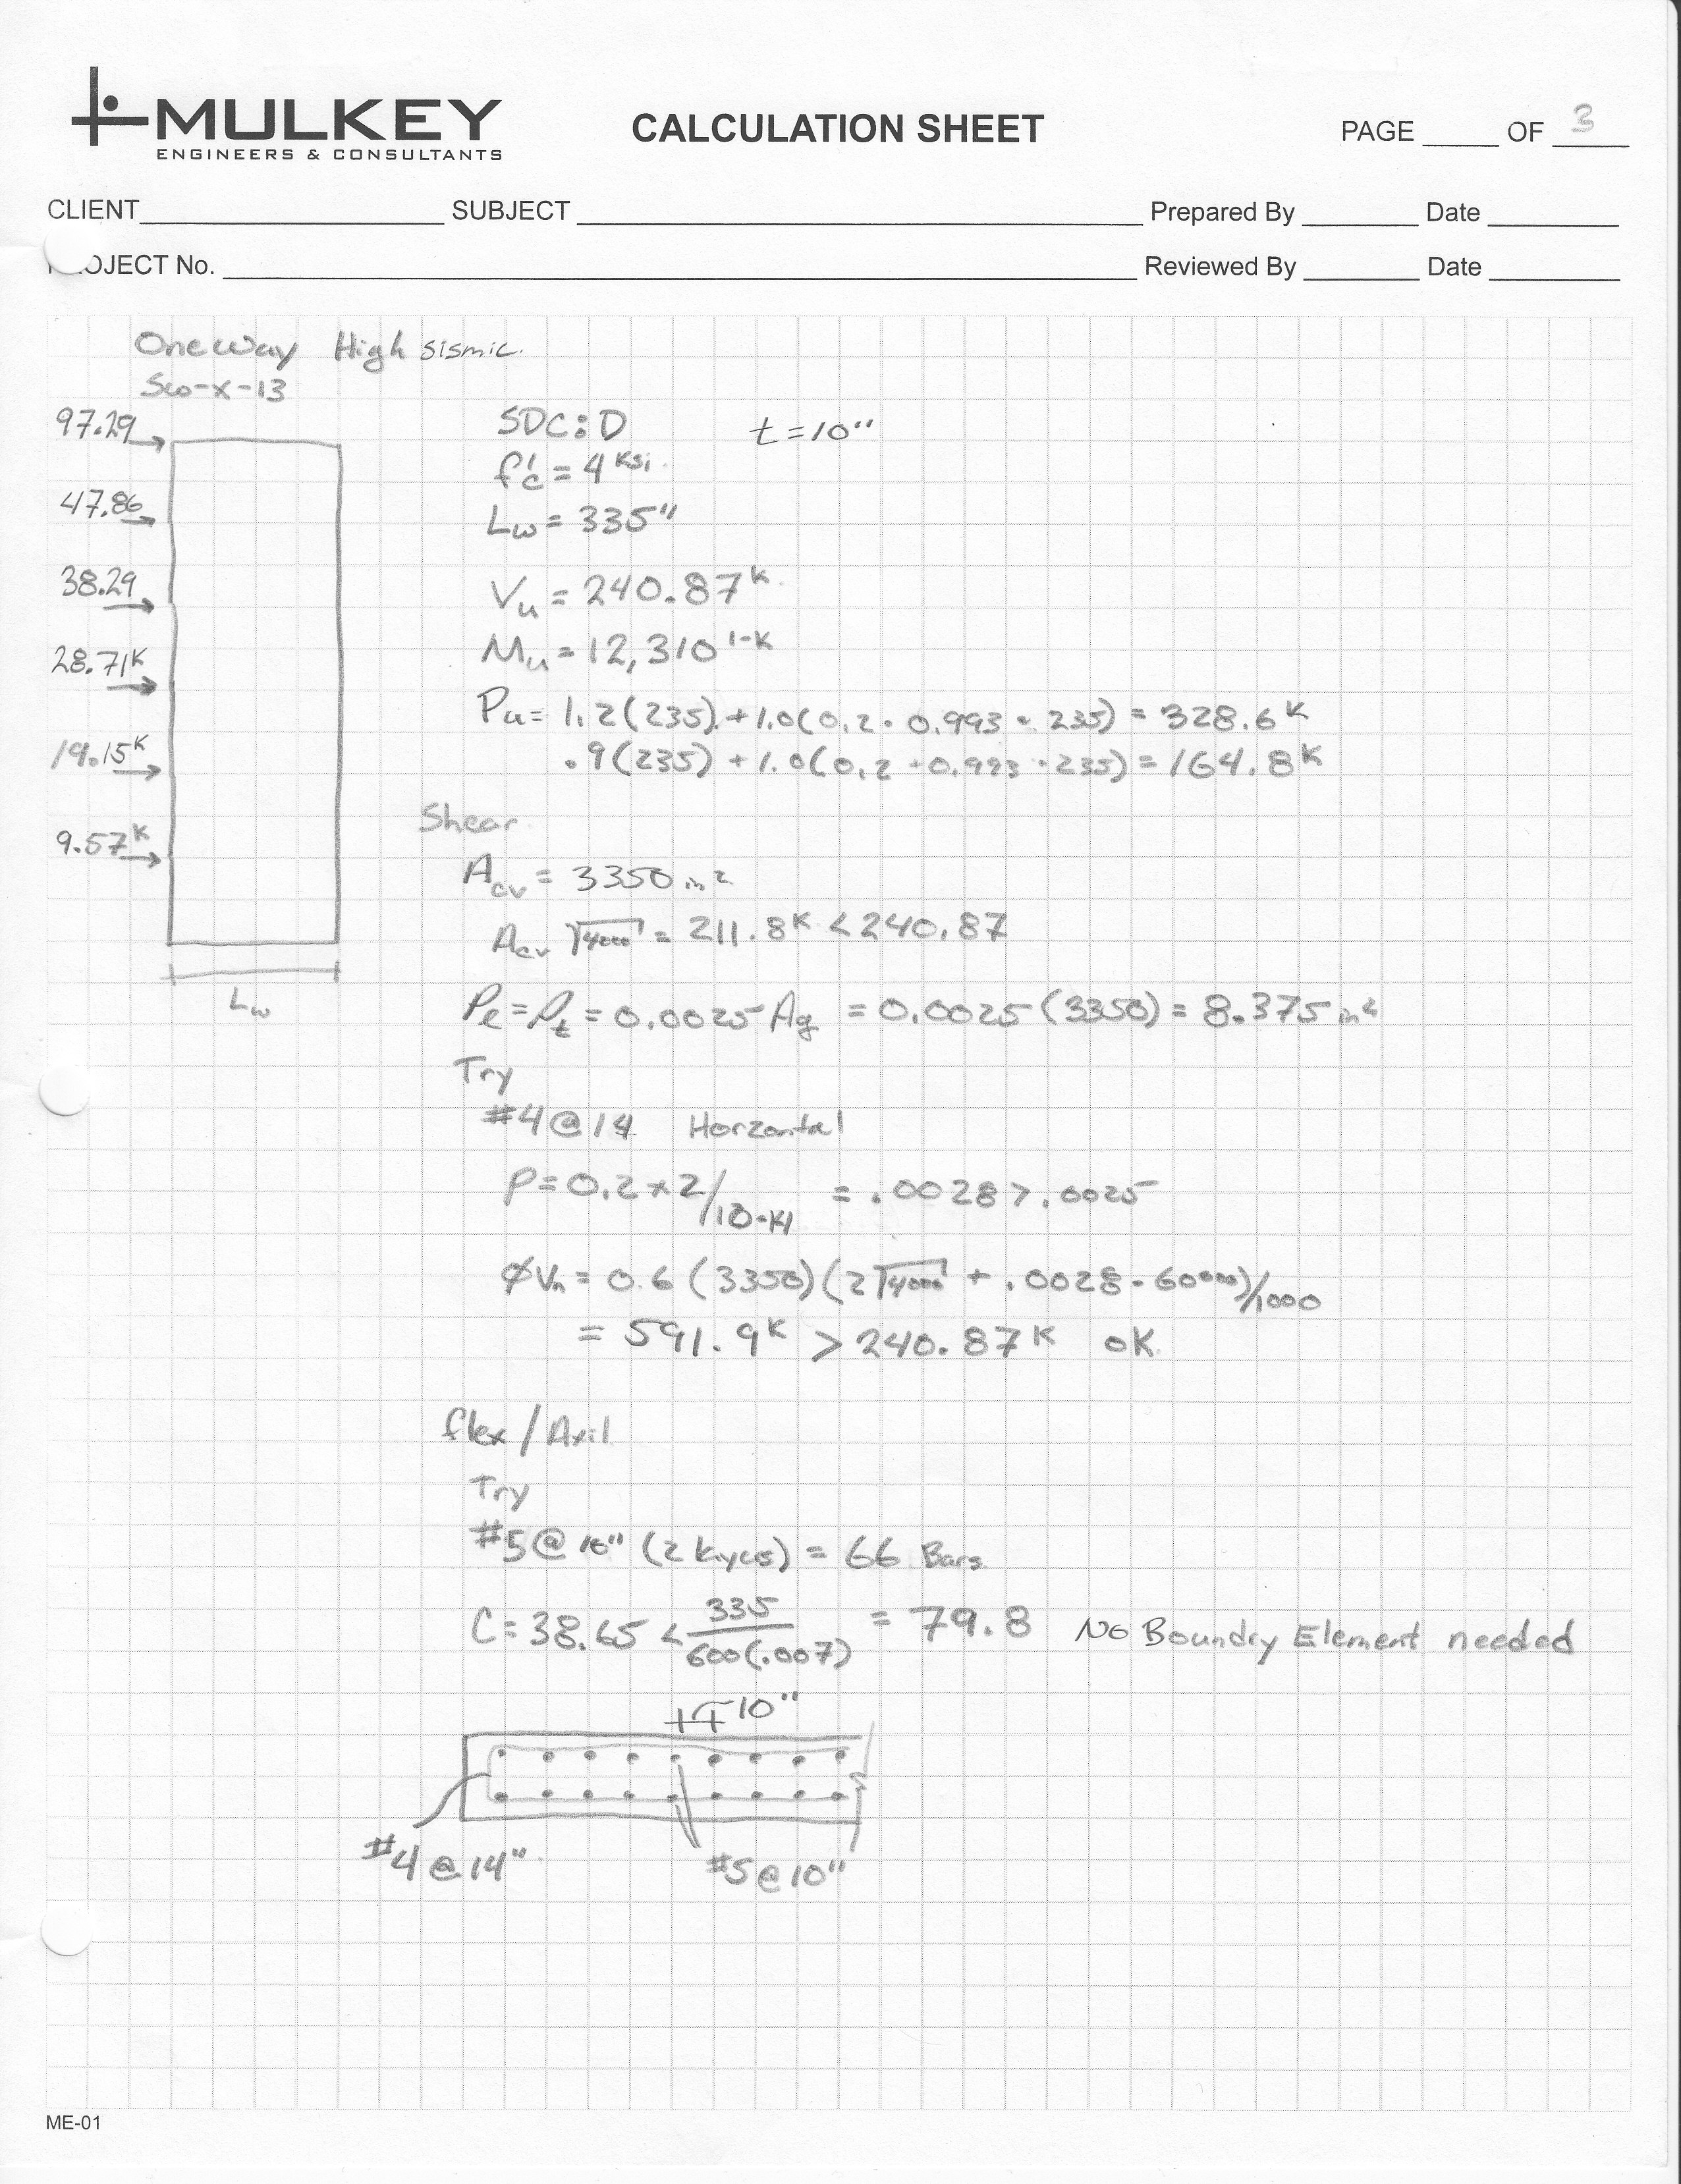 MULKEY
ENGINEERS & CONSULTANTS
CALCULATION SHEET
PAGE ____ OF 3
CLIENT ____ SUBJECT ____ Prepared By ____ Date ____
OJECT No. ____ Reviewed By ____ Date ____
One Way High sismic.
SW-X-13
97.29
47.86
38.29
28.71K
19.15K
9.57K
Lw
SDC: D t = 10"
f'c = 4 ksi.
Lw = 335"
Vu = 240.87K
Mu = 12,310 '-K
Pu = 1.2(235) + 1.0(0.2 · 0.993 · 235) = 328.6K
.9(235) + 1.0(0.2 · 0.993 · 235) = 164.8K
Shear
Acv = 3350 in2
Acv √4000 = 211.8K < 240.87
Pe = Pt = 0.0025 Ag = 0.0025 (3350) = 8.375 in2
Try
#4 @ 14 Horzontal
P = 0.2 x 2/10·14 = .0028 > .0025
ØVn = 0.6 (3350)(2√4000 + .0028 · 60000)/1000
= 591.9K > 240.87K OK
flex / Axil
Try
#5 @ 10" (2 = 66 Bars
C = 38.65 < 335/600(.007) = 79.8 No Boundry Element needed
10"
#4 @ 14"
#5 @ 10"
ME-01